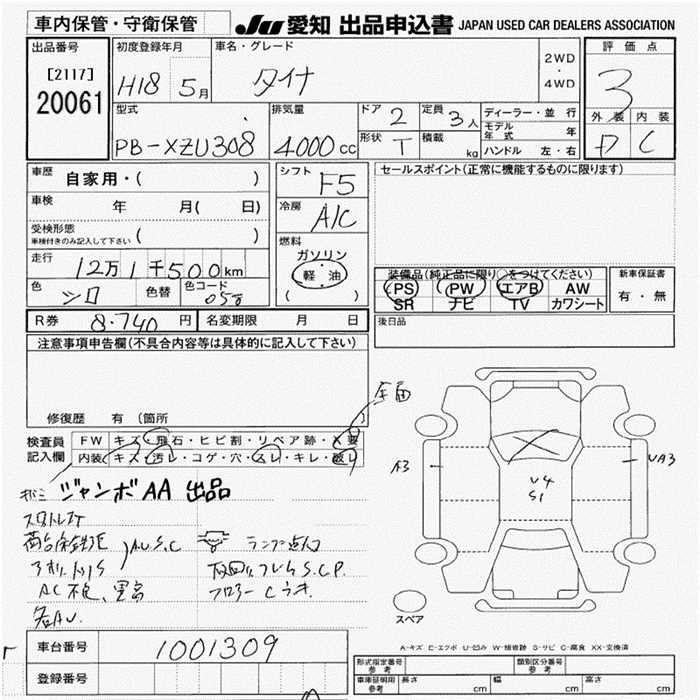 車内保管・守衛保管
JU 愛知 出品申込書 JAPAN USED CAR DEALERS ASSOCIATION
出品番号
[2117]
20061
初度登録年月
H18 5月
車名・グレード
ダイナ
2WD
・
4WD
評価点
3
外装 内装
D C
型式
PB-XZU308
排気量
4000cc
ドア 2
形状 T
定員 3人
積載 kg
ディーラー・並行
モデル年式 年
ハンドル 左・右
車歴 自家用・( )
車検 年 月( 日)
受検形態
車検付きのみ記入して下さい ( )
走行 12万1千500km
色 シロ 色替 色コード 058
シフト F5
冷房 A/C
燃料
ガソリン
軽油
( )
セールスポイント(正常に機能するものに限ります)
装備品(純正品に限り○をつけてください)
PS PW エアB AW
SR ナビ TV カワシート
新車保証書
有・無
R券 8.740円 名変期限 月 日
後日品
注意事項申告欄(不具合内容等は具体的に記入して下さい)
修復歴 有(箇所 )
検査員
記入欄
FW キズ・飛石・ヒビ割・リペア跡・X要
内装 キズ・汚レ・コゲ・穴・スレ・キレ・破レ
ジャンボAA 出品
A3
U4
S1
UA3
スペア
A-キズ E-エクボ U-凹ミ W-補修跡 S-サビ C-腐食 XX-交換済
車台番号 1001309
登録番号
形式指定番号
参考
類別区分番号
参考
車庫証明用
参考
長さ cm 幅 cm 高さ cm